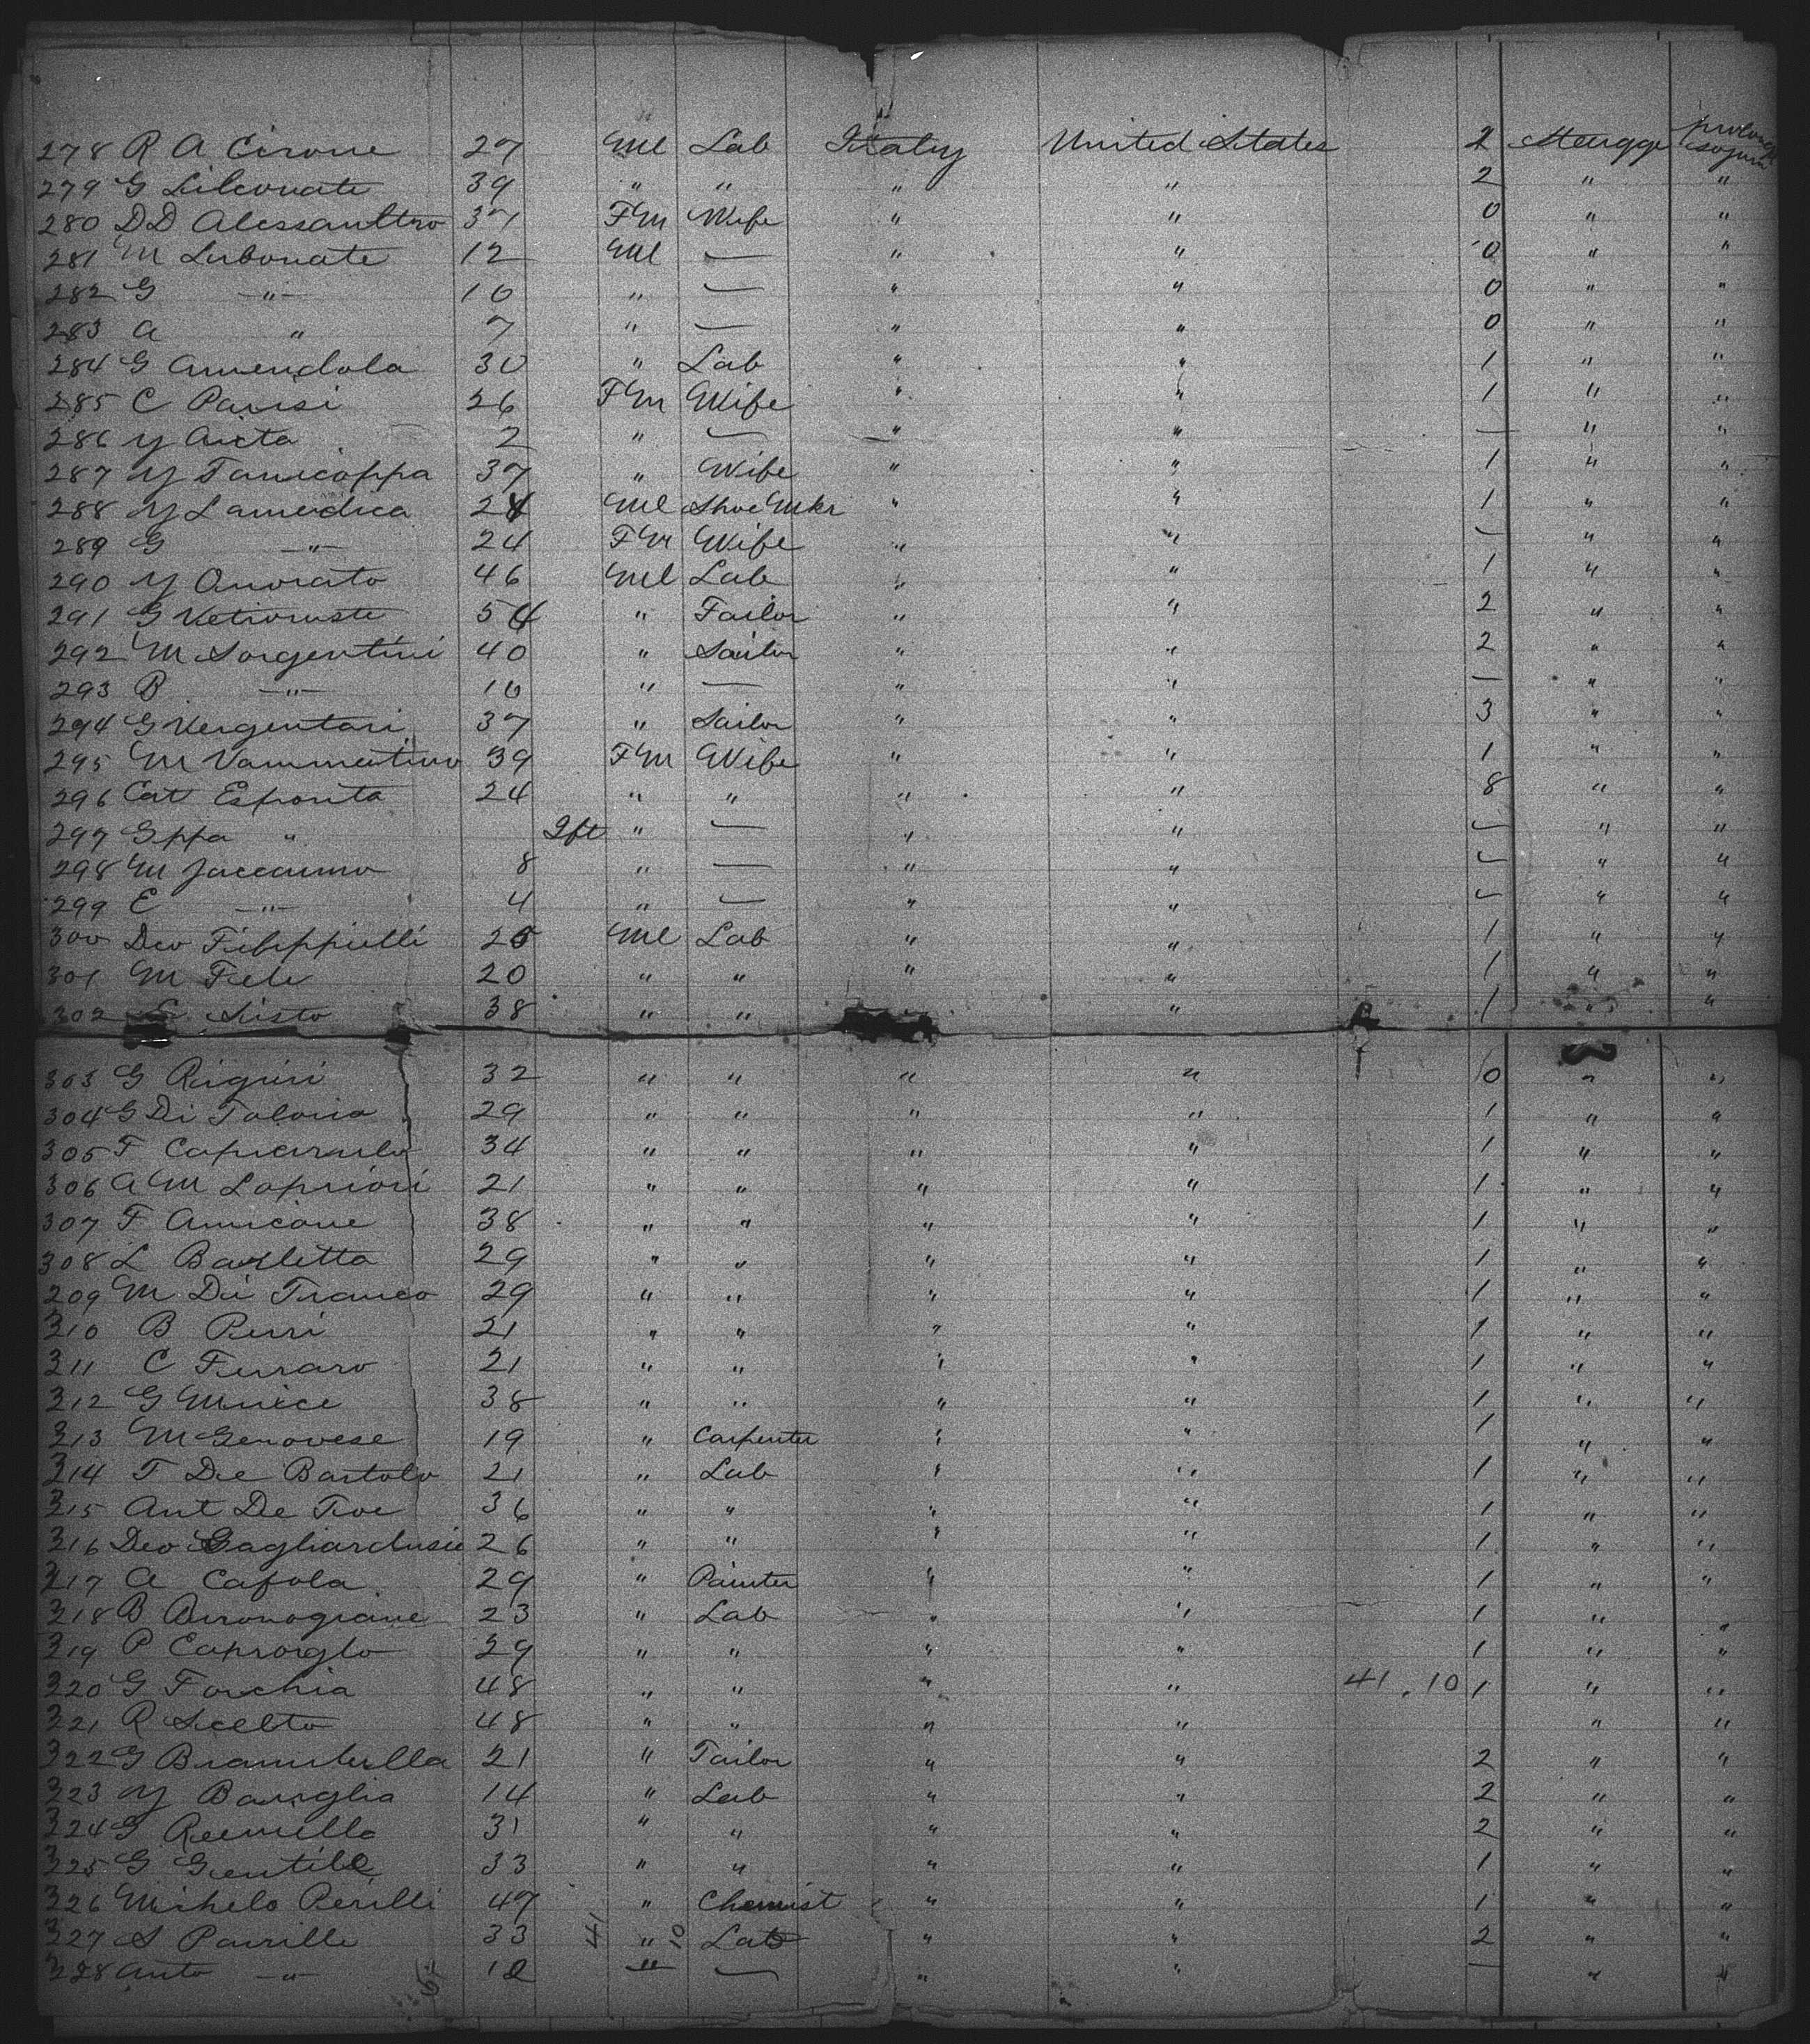 278 R A Cirone 27 Ml Lab Italy United States 2 Steurgge
279 G Libernate 39 " " " " 2 " "
280 DD Alessanttro 37 FM Wife " " 0 " "
281 M Lubonate 12 Ml — " " 0 " "
282 G —"— 10 " — " " 0 " "
283 A " 7 " — " " 0 " "
284 G Amendola 30 " Lab " " 1 " "
285 C Parisi 26 FM Wife " " 1 " "
286 y Aieta 2 " — " " — " "
287 y Tanicoppa 37 " Wife " " 1 " "
288 y Lamedica 28 Ml Shoe Mkr " " 1 " "
289 G —"— 24 FM Wife " " — " "
290 y Onorato 46 Ml Lab " " 1 " "
291 G 54 " Tailor " " 2 " "
292 M Sorgentini 40 " Sailor " " 2 " "
293 B —"— 10 " — " " — " "
294 G Vergentari 37 " Sailor " " 3 " "
295 M Vammentino 39 FM Wife " " 1 " "
296 Cat Esponta 24 " " " " 8 " "
297 Gppa " Ift " — " " — " "
298 M Jaccarino 8 " — " " — " "
299 E —"— 4 " — " " — " "
300 Deo Filippielli 25 Ml Lab " " 1 " "
301 M Fiele 20 " " " " 1 " "
302 Sisto 38 " " " " 1 " "
303 G Rigiri 32 " " " " 0 " "
304 G Di Taloria 29 " " " " 1 " "
305 F 34 " " " " 1 " "
306 A M Lapriori 21 " " " " 1 " "
307 F Amicone 38 " " " " 1 " "
308 L Barletta 29 " " " " 1 " "
209 M Di Franco 29 " " " " 1 " "
310 B Perri 21 " " " " 1 " "
311 C Ferraro 21 " " " " 1 " "
312 G 38 " " " " 1 " "
313 M Genovese 19 " Carpenter " " 1 " "
314 F De Bartolo 21 " Lab " " 1 " "
315 Ant De Foe 36 " " " " 1 " "
316 Deo Gagliardusie 26 " " " " 1 " "
317 A Cafola 29 " Painter " " 1 " "
318 B 23 " Lab " " 1 " "
319 P Caproiglo 29 " " " " 1 " "
320 G Forchia 48 " " " " 41.10 1 " "
321 R Scelto 48 " " " " " "
322 G Brambella 21 " Tailor " " 2 " "
323 y Baviglia 14 " Lab " " 2 " "
324 G Remillo 31 " " " " 2 " "
325 G Gentile 33 " " " " 1 " "
326 Mishelo Perilli 47 " Chemist " " 1 " "
327 S Pairille 33 41 " 10 Lab " " 2 " "
328 Anto —"— 12 " — " " — " "